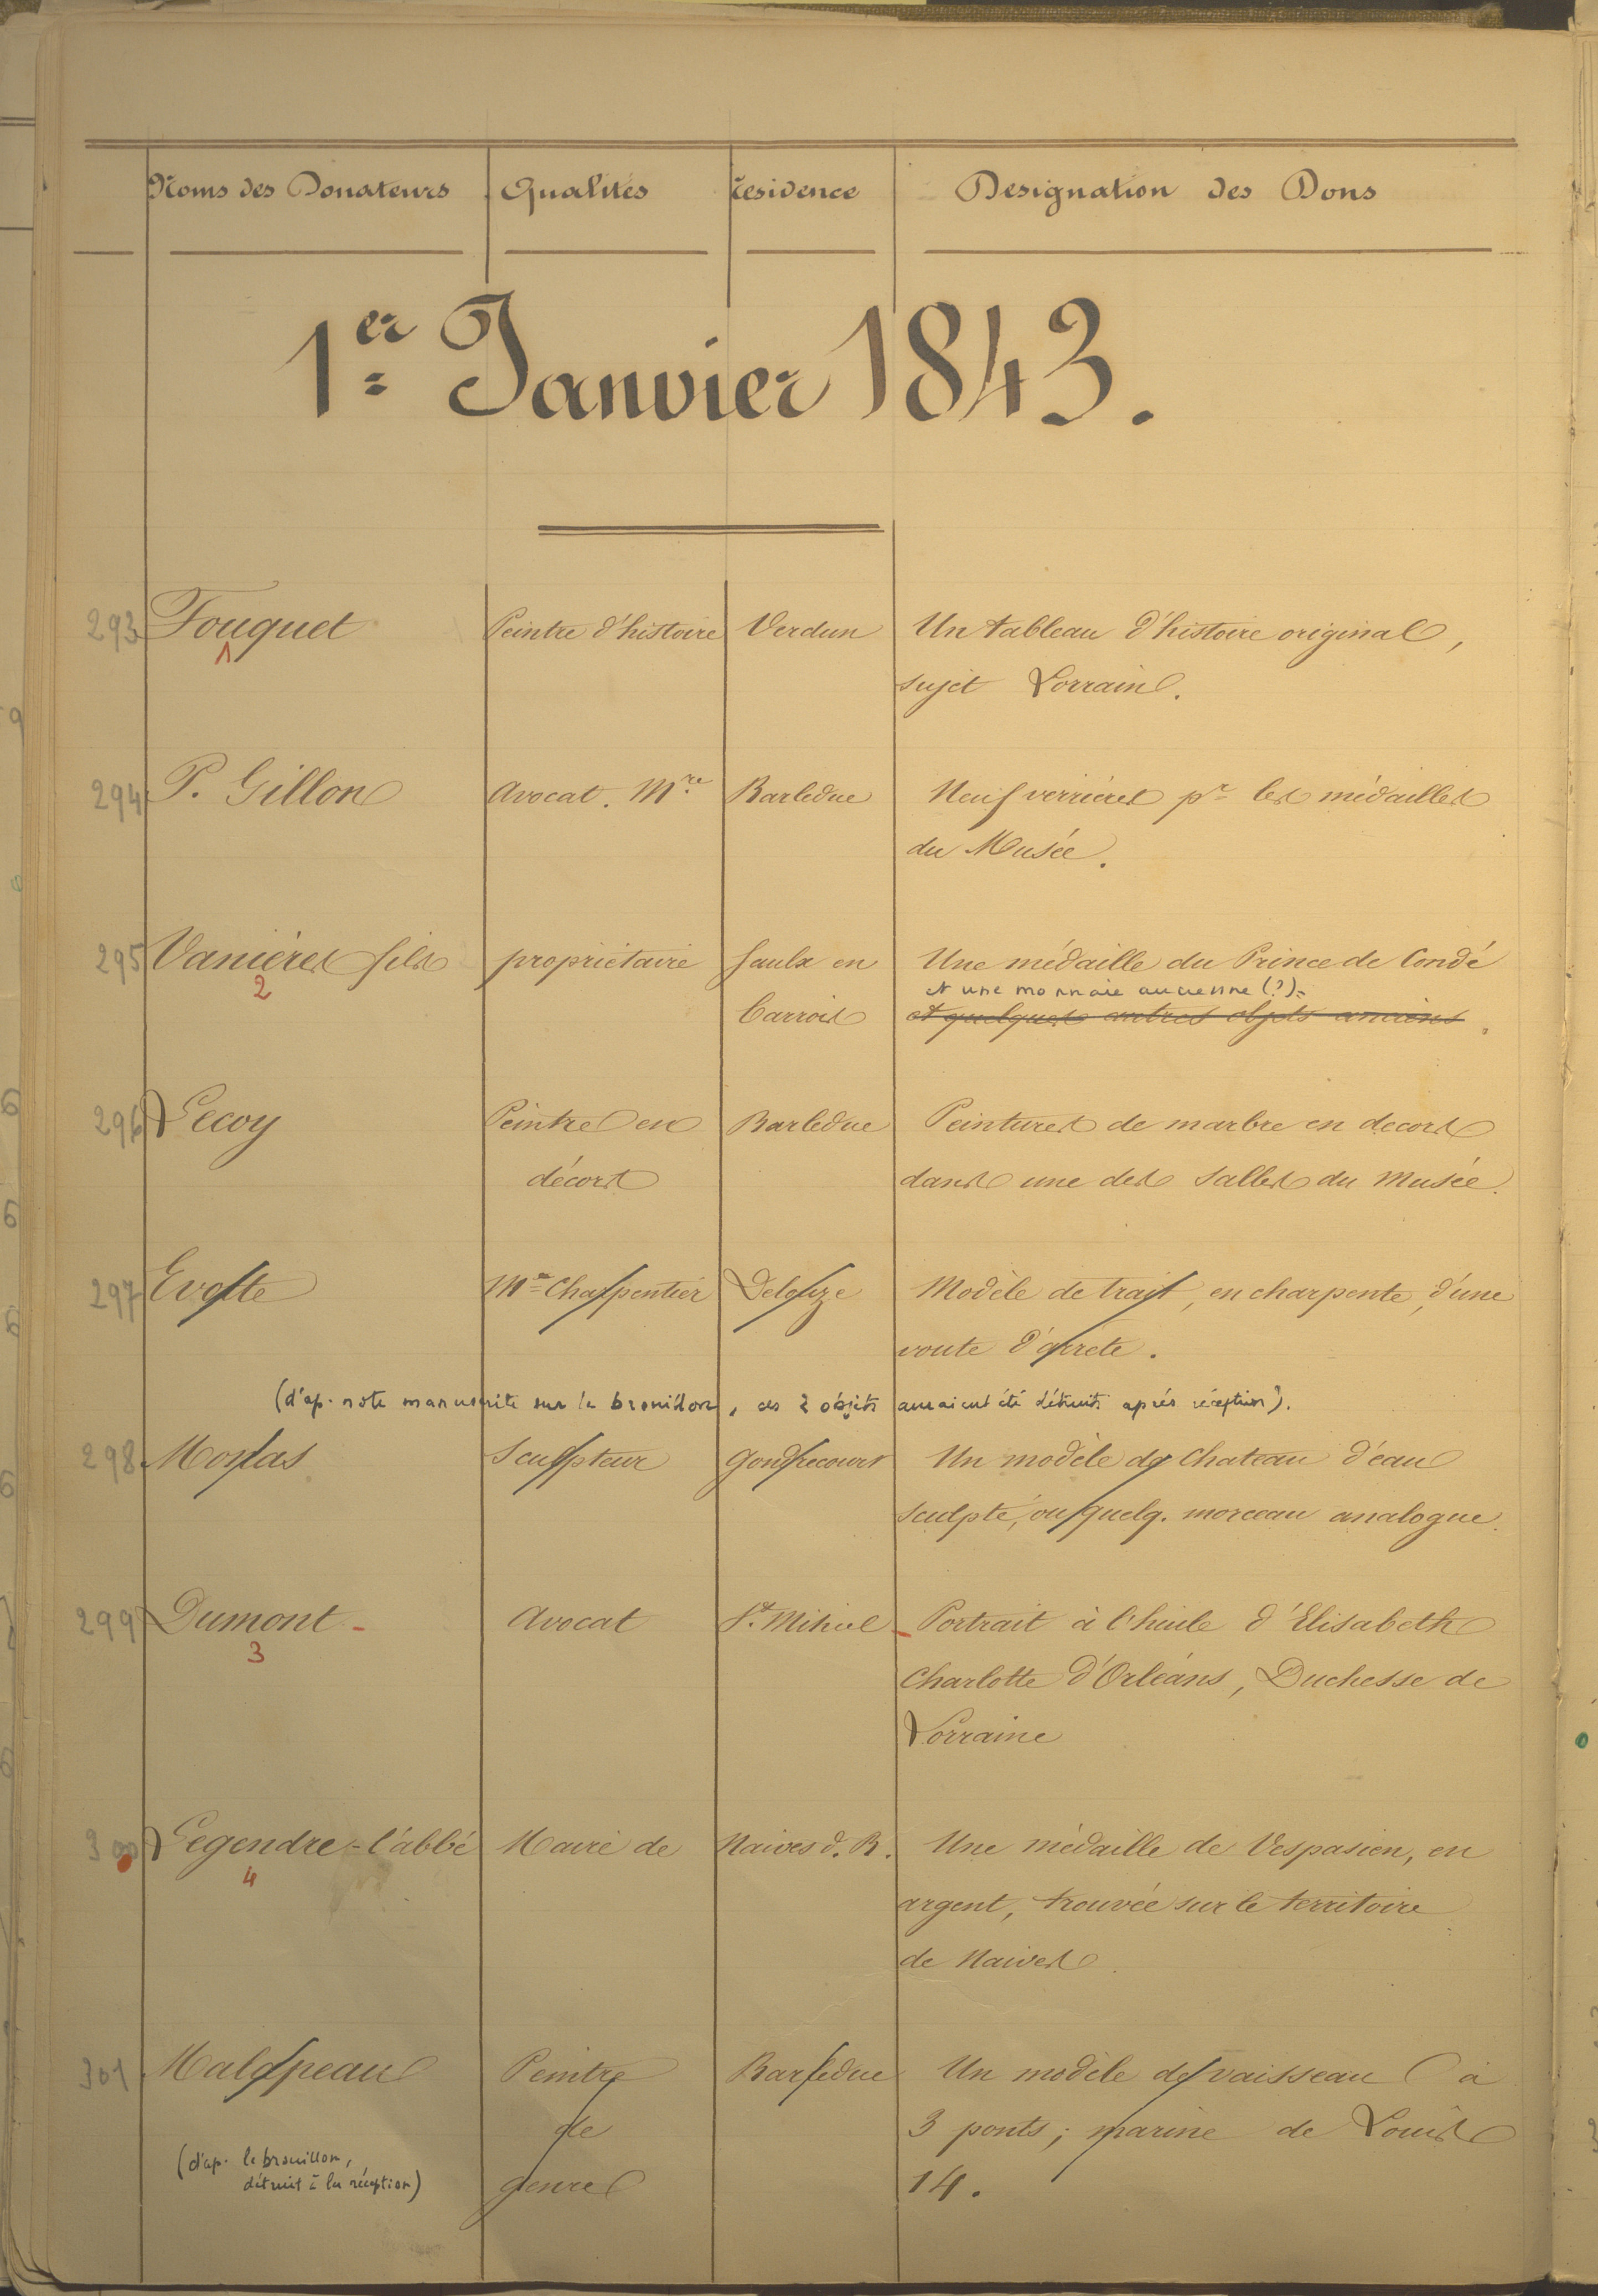 Noms des Donateurs Qualités Résidence Designation des Dons
1er Janvier 1843.
293 Fouquet Peintre d'histoire Verdun Un tableau d'histoire original,
1
sujet Lorrain.
294 P. Gillon Avocat. Mre Barleduc Neuf verrières pr les médailles
du Musée.
295 Vanières fils propriétaire Saulx en Une médaille du Prince de Condé
2 et une monnaie ancienne (?).
Barrois et quelques autres objets anciens.
296 Lecoy Peintre en Barleduc Peintures de marbre en decors
décors dans une des salles du Musée.
297 Evotte Me Charpentier Delouze Modèle de trait, en charpente, d'une
voute d'arrete.
(d'ap. note manuscrite sur le brouillon, ces 2 objets auraient été détruits après réception).
298 Sculpteur Gondrecourt Un modèle de Chateau d'eau
sculpté, ou quelq. morceau analogue.
299 Dumont - Avocat St. Mihiel - Portrait à l'huile d'Elisabeth
3
Charlotte d'Orléans, Duchesse de
Lorraine
300 Legendre - l'abbé Maire de Naives d. B. Une médaille de Vespasien, en
4
argent, trouvée sur le territoire
de Naives.
301 Malapeau Peintre Barleduc Un modèle de vaisseau à
de 3 ponts; marine de Louis
(d'ap. le brouillon,
détruit à la réception)
genre 14.